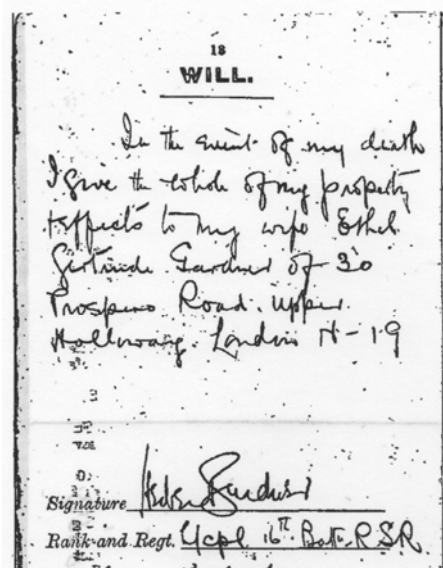 18
WILL.
In the event of my death
I give the whole of my property
& effects to my wife Ethel
Gertrude Gardner of 30
Prospero Road. Upper
Holloway. London N-19
Signature Gardner
Rank and Regt. L/Cpl 16th Batt. R.S.R